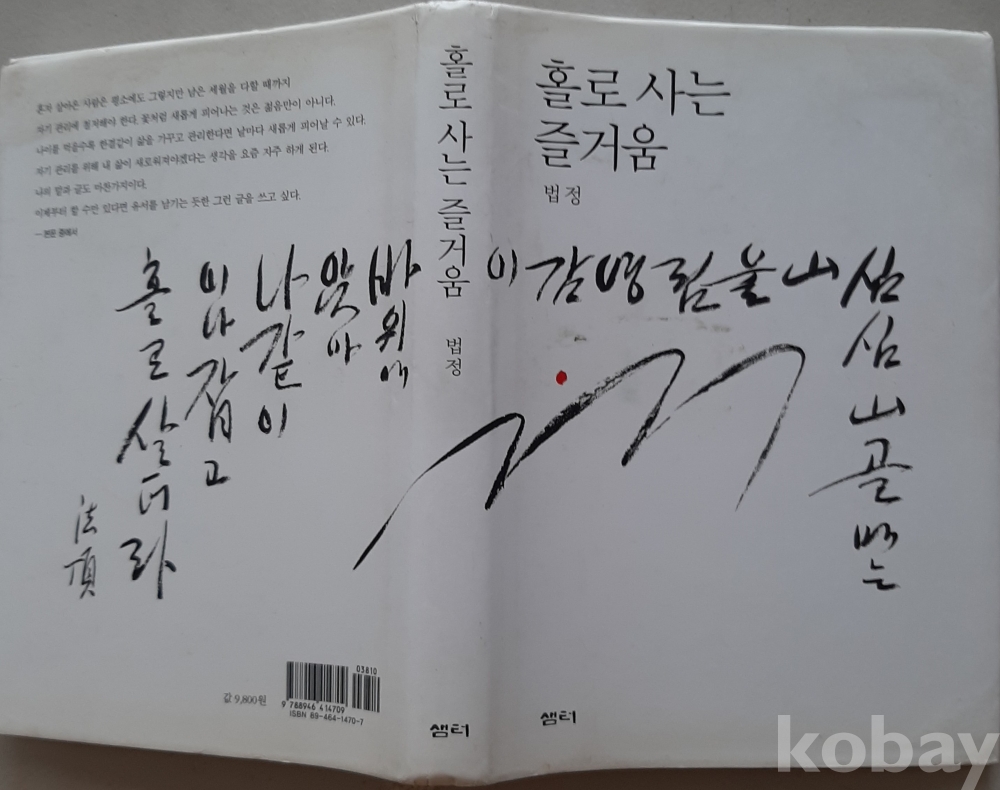 혼자 살아온 사람은 평소에도 그렇지만 남은 세월을 다할 때까지
자기 관리에 철저해야 한다. 꽃처럼 새롭게 피어나는 것은 젊음만이 아니다.
나이를 먹을수록 한결같이 삶을 가꾸고 관리한다면 날마다 새롭게 피어날 수 있다.
자기 관리를 위해 내 삶이 새로워져야겠다는 생각을 요즘 자주 하게 된다.
나의 말과 글도 마찬가지이다.
이제부터 할 수만 있다면 유서를 남기는 듯한 그런 글을 쓰고 싶다.
— 본문 중에서
홀로 사는 즐거움
법정
홀로 사는
즐거움
법정
심심山골에는
山울림영감이
바위에
앉아
나같이
이나 잡고
홀로 살더라
法頂
값 9,800원
03810
9 788946 414709
ISBN 89-464-1470-7
샘터
샘터
kobay